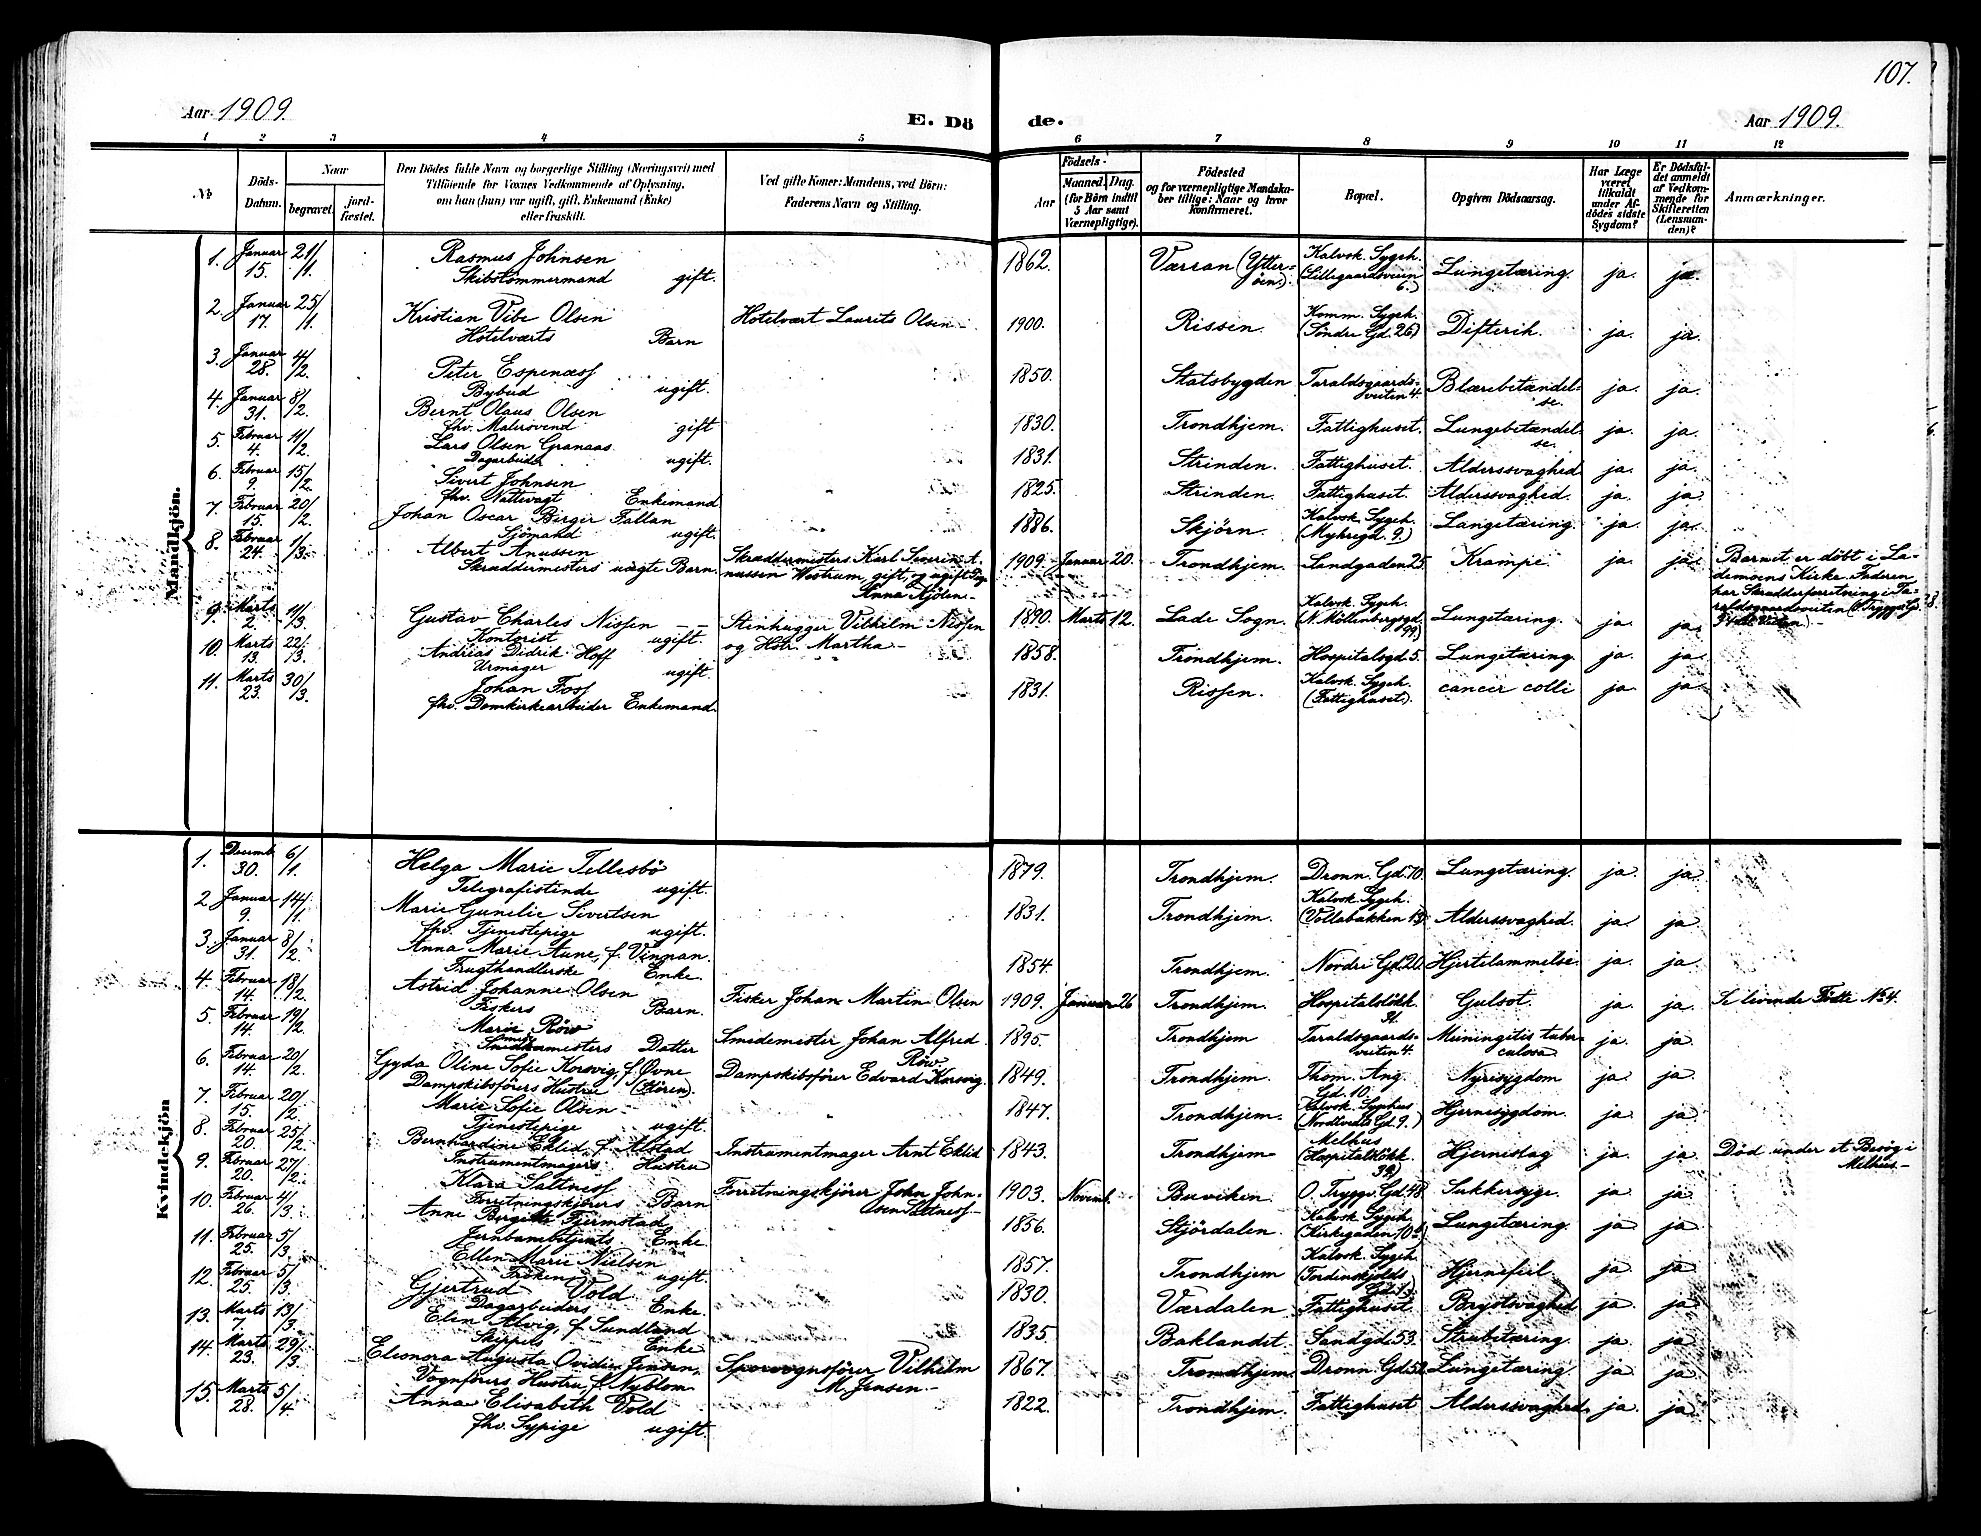 107.
Aar 1909.
E. Dö
de.
Aar 1909.
1 2 3 4 5 6 7 8 9 10 11 12
No
Döds-
Datum.
Naar
begravet.
jord-
fæstet.
Den Dödes fulde Navn og borgerlige Stilling (Næringsvei) med
Tilföiende for Voxnes Vedkommende af Oplysning,
om han (hun) var ugift, gift, Enkemand (Enke)
eller fraskilt.
Ved gifte Koner: Mandens, ved Börn:
Faderens Navn og Stilling.
Födsels-
Aar
Maaned. Dag.
(for Börn indtil
5 Aar samt
Værnepligtige).
Födested
og for værnepligtige Mandska-
ber tillige: Naar og hvor
konfirmeret.
Bopæl.
Opgiven Dödsaarsag.
Har Læge
været
tilkaldt
under Af-
dödes sidste
Sygdom?
Er Dödsfal-
det anmeldt
af Vedkom-
mende for
Skifteretten
(Lensman-
den)?
Anmærkninger.
Mandkjön.
1. Januar 15. 21/1. Rasmus Johnsen 1862. Værran (Ytter- Kalvsk. Sygeh. Lungetæring. ja. ja.
Skibstömmermand gift. öen.). (Lillegaardsveien 6.)
2. Januar 17. 25/1. Kristian Vibe Olsen Hotelvært Laurits Olsen 1900. Rissen. Komm. Sygeh. Difterik. ja. ja.
Hotelværts Barn (Söndre Gd. 26)
3. Januar 28. 4/2. Peter Espenæss 1850. Statsbygden Taraldsgaards- Blærebetændel- ja. ja.
Bybud ugift. veiten 4. se.
4. Januar 31. 8/2. Bernt Olaus Olsen 1830. Trondhjem. Fattighuset. Lungebetændel- ja. ja.
fhv. Malersvend gift se.
5. Februar 4. 11/2. Lars Olsen Granaas 1831. Strinden. Fattighuset. Alderssvaghed ja. ja.
Dagarbeider ugift.
6. Februar 9. 15/2. Sivert Johnsen 1825. Strinden. Fattighuset. Alderssvaghed. ja. ja.
fhv. Nattevagt Enkemand
7. Februar 15. 20/2. Johan Oscar Birger Fallan 1886. Skjörn. Kalvsk. Sygeh. Lungetæring. ja. ja.
Sjömand ugift. (Myhregd. 9.)
8. Februar 24. 1/3. Albert Anussen Skræddermesters Karl Severin A- 1909. Januar 20. Trondhjem. Sandgaden 25. Krampe. ja. ja. Barnet er döbt i La-
Skræddermesters uægte Barn. nussen Westrum, gift, og ugift demoens Kirke. Faderen
Anna Kjölen har Skrædderforretning i Ta-
raldsgaardsveiten
9. Marts 2. 11/3. Gustav Charles Nissen Stenhugger Vilhelm Nissen 1890. Marts 12. Lade Sogn. Kalvsk. Sygeh. Lungetæring. ja. ja.
Kontorist ugift. og Hstr. Martha (N. Möllenbergsgd. 99)
10. Marts 13. 22/3. Andreas Didrik Hoff 1858. Trondhjem. Hospitalsgd. 5. Lungetæring. ja. ja.
Urmager ugift.
11. Marts 23. 30/3. Johan Foss 1831. Rissen. Kalvsk. Sygeh. cancer colli ja. ja.
fhv. Domkirkearbeider Enkemand. (Fattighuset).
Kvindekjön
1. Decemb. 30. 6/1. Helga Marie Tellesbö 1879. Trondhjem. Dronn. Gd. 70. Lungetæring. ja. ja
Telegrafistinde ugift.
2. Januar 9. 14/1. Marie Gunelie Sivertsen 1831. Trondhjem. Kalvsk. Sygeh. Alderssvaghed. ja. ja
fhv. Tjenestepige ugift. (Vollabakken 15)
3. Januar 31. 8/2. Anna Marie Aune, f. Vinnan. 1854. Trondhjem. Nordre Gd. 20. Hjertelammelse. ja. ja.
Frugthandlerske Enke.
4. Februar 14. 18/2. Astrid Johanne Olsen Fisker Johan Martin Olsen 1909. Januar 26 Trondhjem. Hospitalslökk. Gulsot. ja. ja. Se levende Födte No 4.
Fiskers Barn. 31.
5. Februar 14. 19/2. Marie Röw Smedemester Johan Alfred 1895. Trondhjem Taraldsgaards- Meningitis tuber- ja. ja.
Smedemesters Datter Röw. veiten 4. culosa
6. Februar 14. 20/2. Gyda Oline Sofie Korsvig, f. Övne Dampskibsförer Edvard Korsvig. 1849. Trondhjem. Thom. Ang. Nyresygdom ja. ja.
Dampskibsförers Hustru (Hören). Gd. 10.
7. Februar 15. 20/2. Marie Sofie Olsen 1847. Trondhjem. Kalvsk. Sygehus Hjernesygdom. ja. ja.
Tjenestepige ugift. (Nordlands Gd. 9.)
8. Februar 20. 25/2. Bernhardine Eklid, f. Alstad Instrumentmager Arnt Eklid 1843. Trondhjem Melhus Hjerneslag ja. ja. Död under et Besög i
Instrumentmagers Hustru (Hospitalslökk. 39) Melhus.
9. Februar 20. 27/2. Klara Saltness Forretningskjörer John John- 1903. Novemb. Buviken. O. Trygv. Gd. 48. Sukkersyge. ja. ja.
Forretningskjörers Barn sen Saltness
10. Februar 26. 4/3. Anne Bergitte Fjermstad 1856. Stjördalen. Kalvsk. Sygeh. Lungetæring. ja. ja.
Jernbanebetjents Enke (Kirkegaden 10b)
11. Februar 25. 5/3. Ellen Marie Nielsen 1857. Trondhjem Kalvsk. Sygeh. Hjernefeil. ja. ja.
Fröken ugift. (Tordenskjolds Gd.
12. Februar 25. 5/3. Gjertrud Vold 1830. Værdalen Fattighuset. Brystsvaghed ja. ja.
Dagarbeiders Enke.
13. Marts 7. 13/3. Elin Alvig, f. Sundland 1835. Baklandet. Sandgd. 53. Strubetæring. ja. ja.
Skippers Enke
14. Marts 23. 29/3. Eleonora Augusta Ovidia Jensen, Sporvognsförer Vilhelm 1867. Trondhjem. Dronn. Gd. 52. Lungetæring. ja. ja.
Vognförers Hustru, f. Nyblom M. Jensen
15. Marts 28. 5/4. Anna Elisabeth Vold 1822. Trondhjem. Fattighuset Alderssvaghed. ja. ja
fhv. Sypige ugift.